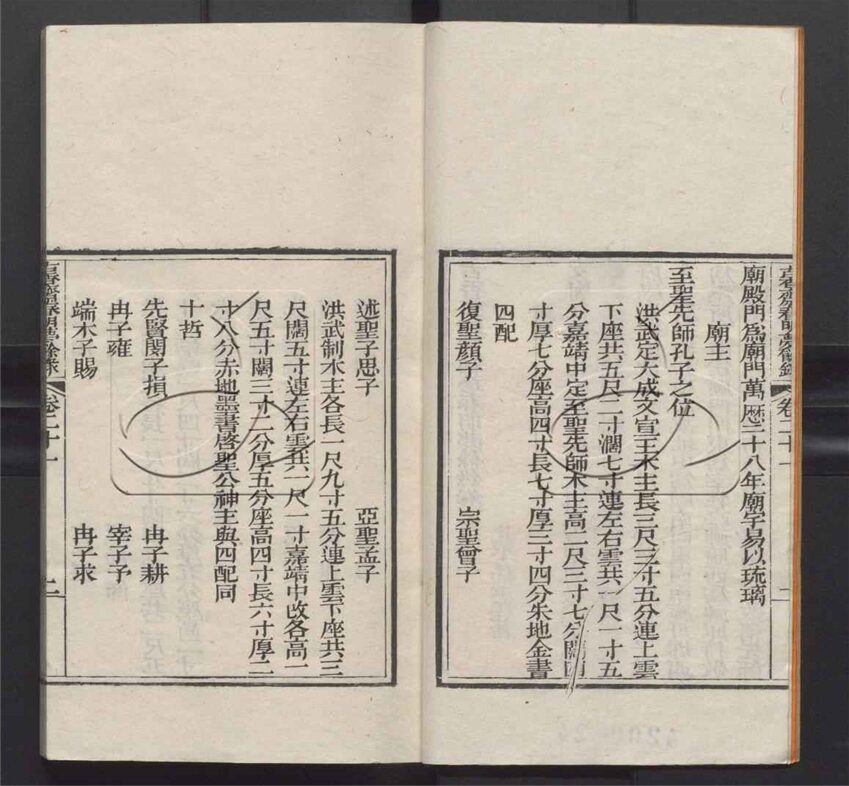 古香齋春明夢餘錄 卷二十一 二
廟殿門爲廟門萬歷二十八年廟宇易以琉璃
廟主
至聖先師孔子之位
洪武定大成文宣王木主長三尺三寸五分連上雲
下座共五尺二寸濶七寸連左右雲共一尺一寸五
分嘉靖中定至聖先師木主高二尺三寸七分闊四
寸厚七分座高四寸長七寸厚三寸四分朱地金書
四配
復聖顏子 宗聖曾子
述聖子思子 亞聖孟子
洪武制木主各長一尺九寸五分連上雲下座共三
尺闊五寸連左右雲共一尺一寸嘉靖中改各高一
尺五寸闊三寸二分厚五分座高四寸長六寸厚二
寸八分赤地墨書啓聖公神主與四配同
十哲
先賢閔子損 冉子耕
冉子雍 宰子予
端木子賜 冉子求
古香齋春明夢餘錄 卷二十一 二